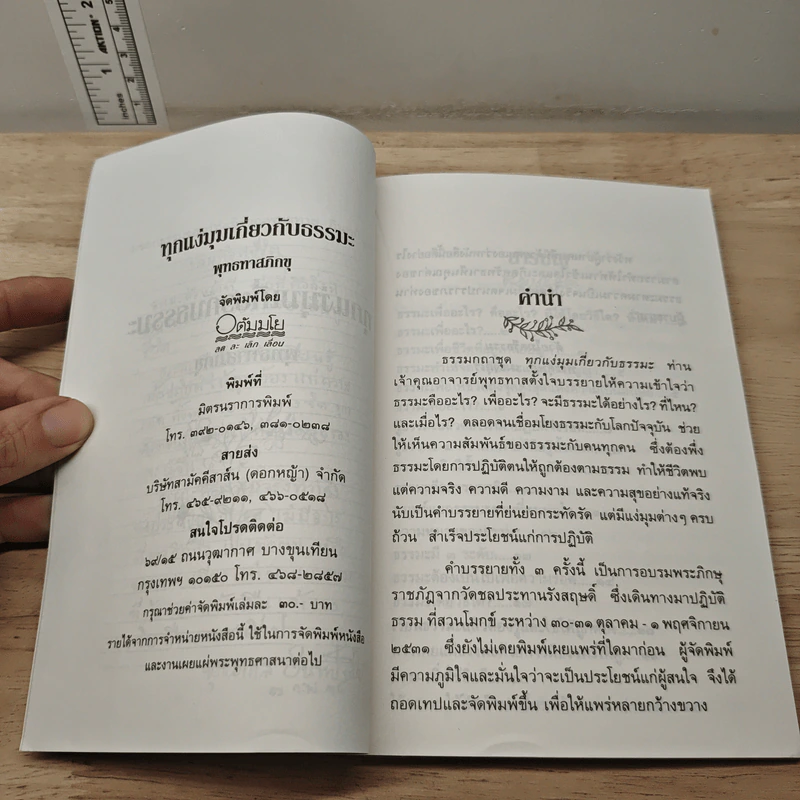 inches
AKTION
1
2
ทุกแง่มุมเกี่ยวกับธรรมะ
พุทธทาสภิกขุ
จัดพิมพ์โดย
อตัมมโย
ลด ละ เลิก เลื่อน
พิมพ์ที่
มิตรนราการพิมพ์
โทร. ๓๙๒-๐๑๔๖, ๓๘๑-๐๒๓๘
สายส่ง
บริษัทสามัคคีสาส์น (ดอกหญ้า) จำกัด
โทร. ๔๖๕-๙๒๑๑, ๔๖๖-๐๕๑๘
สนใจโปรดติดต่อ
๖๙/๑๕ ถนนวุฒากาศ บางขุนเทียน
กรุงเทพฯ ๑๐๑๕๐ โทร. ๔๖๘-๒๘๕๗
กรุณาช่วยค่าจัดพิมพ์เล่มละ ๓๐.- บาท
รายได้จากการจำหน่ายหนังสือนี้ ใช้ในการจัดพิมพ์หนังสือ
และงานเผยแผ่พระพุทธศาสนาต่อไป
คำนำ
ธรรมกถาชุด ทุกแง่มุมเกี่ยวกับธรรมะ ท่าน
เจ้าคุณอาจารย์พุทธทาสตั้งใจบรรยายให้ความเข้าใจว่า
ธรรมะคืออะไร? เพื่ออะไร? จะมีธรรมะได้อย่างไร? ที่ไหน?
และเมื่อไร? ตลอดจนเชื่อมโยงธรรมะกับโลกปัจจุบัน ช่วย
ให้เห็นความสัมพันธ์ของธรรมะกับคนทุกคน ซึ่งต้องพึ่ง
ธรรมะโดยการปฏิบัติตนให้ถูกต้องตามธรรม ทำให้ชีวิตพบ
แต่ความจริง ความดี ความงาม และความสุขอย่างแท้จริง
นับเป็นคำบรรยายที่ย่นย่อกระทัดรัด แต่มีแง่มุมต่างๆ ครบ
ถ้วน สำเร็จประโยชน์แก่การปฏิบัติ
คำบรรยายทั้ง ๓ ครั้งนี้ เป็นการอบรมพระภิกษุ
ราชภัฏจากวัดชลประทานรังสฤษดิ์ ซึ่งเดินทางมาปฏิบัติ
ธรรม ที่สวนโมกข์ ระหว่าง ๓๐-๓๑ ตุลาคม - ๑ พฤศจิกายน
๒๕๓๑ ซึ่งยังไม่เคยพิมพ์เผยแพร่ที่ใดมาก่อน ผู้จัดพิมพ์
มีความภูมิใจและมั่นใจว่าจะเป็นประโยชน์แก่ผู้สนใจ จึงได้
ถอดเทปและจัดพิมพ์ขึ้น เพื่อให้แพร่หลายกว้างขวาง